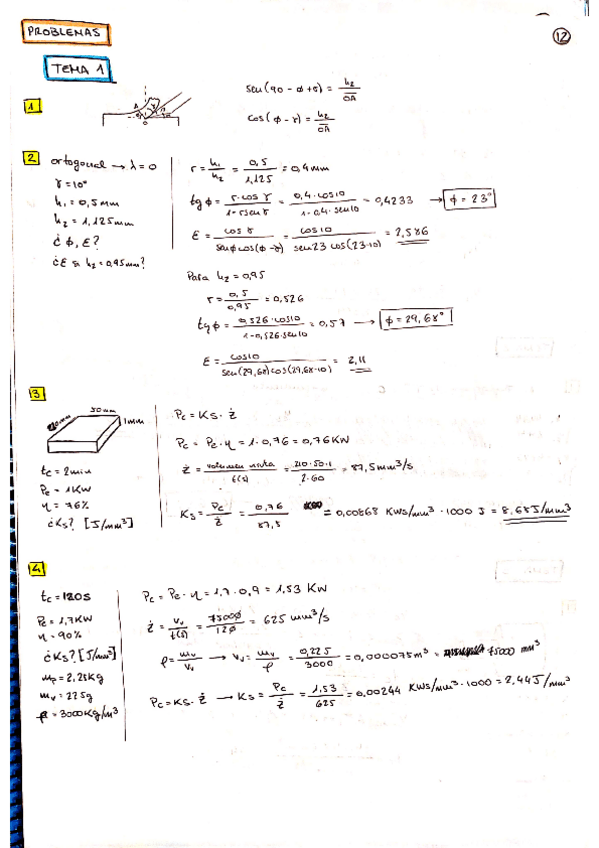 PROBLEMAS
12
TEMA 1
1
sen(90 - φ + γ) = h₂/OA
cos(φ - γ) = h₂/OA
2
ortogonal → λ = 0
γ = 10°
h₁ = 0,5 mm
h₂ = 1,125 mm
¿ φ, ε?
¿ε si h₂ = 0,95 mm?
r = h₁/h₂ = 0,5/1,125 = 0,4 mm
tg φ = r·cos γ/1 - r sen γ = 0,4·cos10/1 - 0,4·sen10 = 0,4233 → φ = 23°
ε = cos γ/sen φ cos(φ - γ) = cos10/sen23 cos(23-10) = 2,586
Para h₂ = 0,95
r = 0,5/0,95 = 0,526
tg φ = 0,526·cos10/1 - 0,526·sen10 = 0,57 → φ = 29,68°
ε = cos10/sen(29,68)cos(29,68-10) = 2,11
3
50 mm
1 mm
tc = 2 min
Pe = 1 KW
η = 76%
¿Ks? [J/mm³]
Pc = Ks · ż
Pc = Pe · η = 1 · 0,76 = 0,76 KW
ż = volumen viruta/t(s) = 210·50·1/2·60 = 87,5 mm³/s
Ks = Pc/ż = 0,76/87,5 = 0,00868 KWs/mm³ · 1000 J = 8,68 J/mm³
4
tc = 120 s
Pe = 1,7 KW
η = 90%
¿Ks? [J/mm³]
mp = 2,25 Kg
mv = 225 g
ρ = 3000 Kg/m³
Pc = Pe · η = 1,7 · 0,9 = 1,53 KW
ż = Vv/t(s) = 75000/120 = 625 mm³/s
ρ = mv/Vv → Vv = mv/ρ = 0,225/3000 = 0,000075 m³ = 75000 mm³
Pc = Ks · ż → Ks = Pc/ż = 1,53/625 = 0,00244 KWs/mm³ · 1000 = 2,44 J/mm³